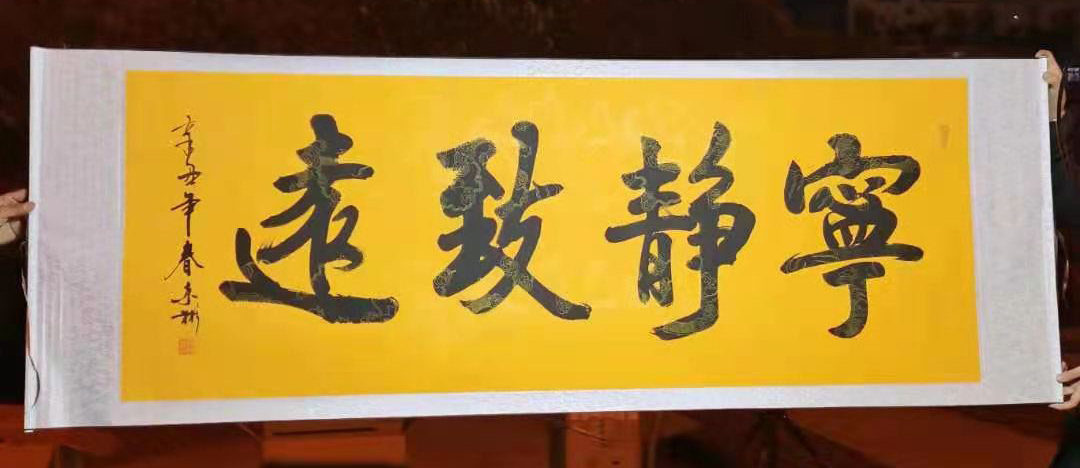 寧靜致遠
辛丑年春未彬